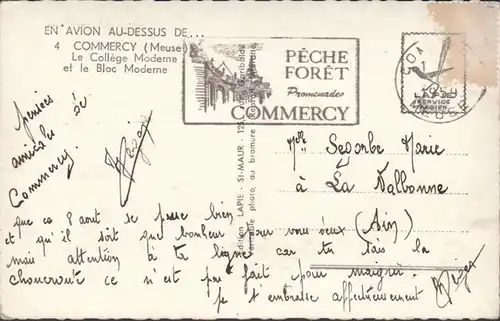 EN AVION AU-DESSUS DE...
4 COMMERCY (Meuse)
Le Collège Moderne
et le Bloc Moderne
PÊCHE
FORÊT
Promenades
COMMERCY
LAPIE
SERVICE
AERIEN
MEUSE
Edition LAPIE - St-MAUR - 125
Véritable photo au bromure
pensées
amicales de
Commercy.
Roger
Melle Segorbe Marie
à La Valbonne
(Ain)
que ce 8 aout se passe bien
et qu'il soit que bonheur pour vous deux
mais attention à ta ligne car tu sais la
choucroute ce n'est pas fait pour maigrir.
je t'embrasse affectueusement Roger